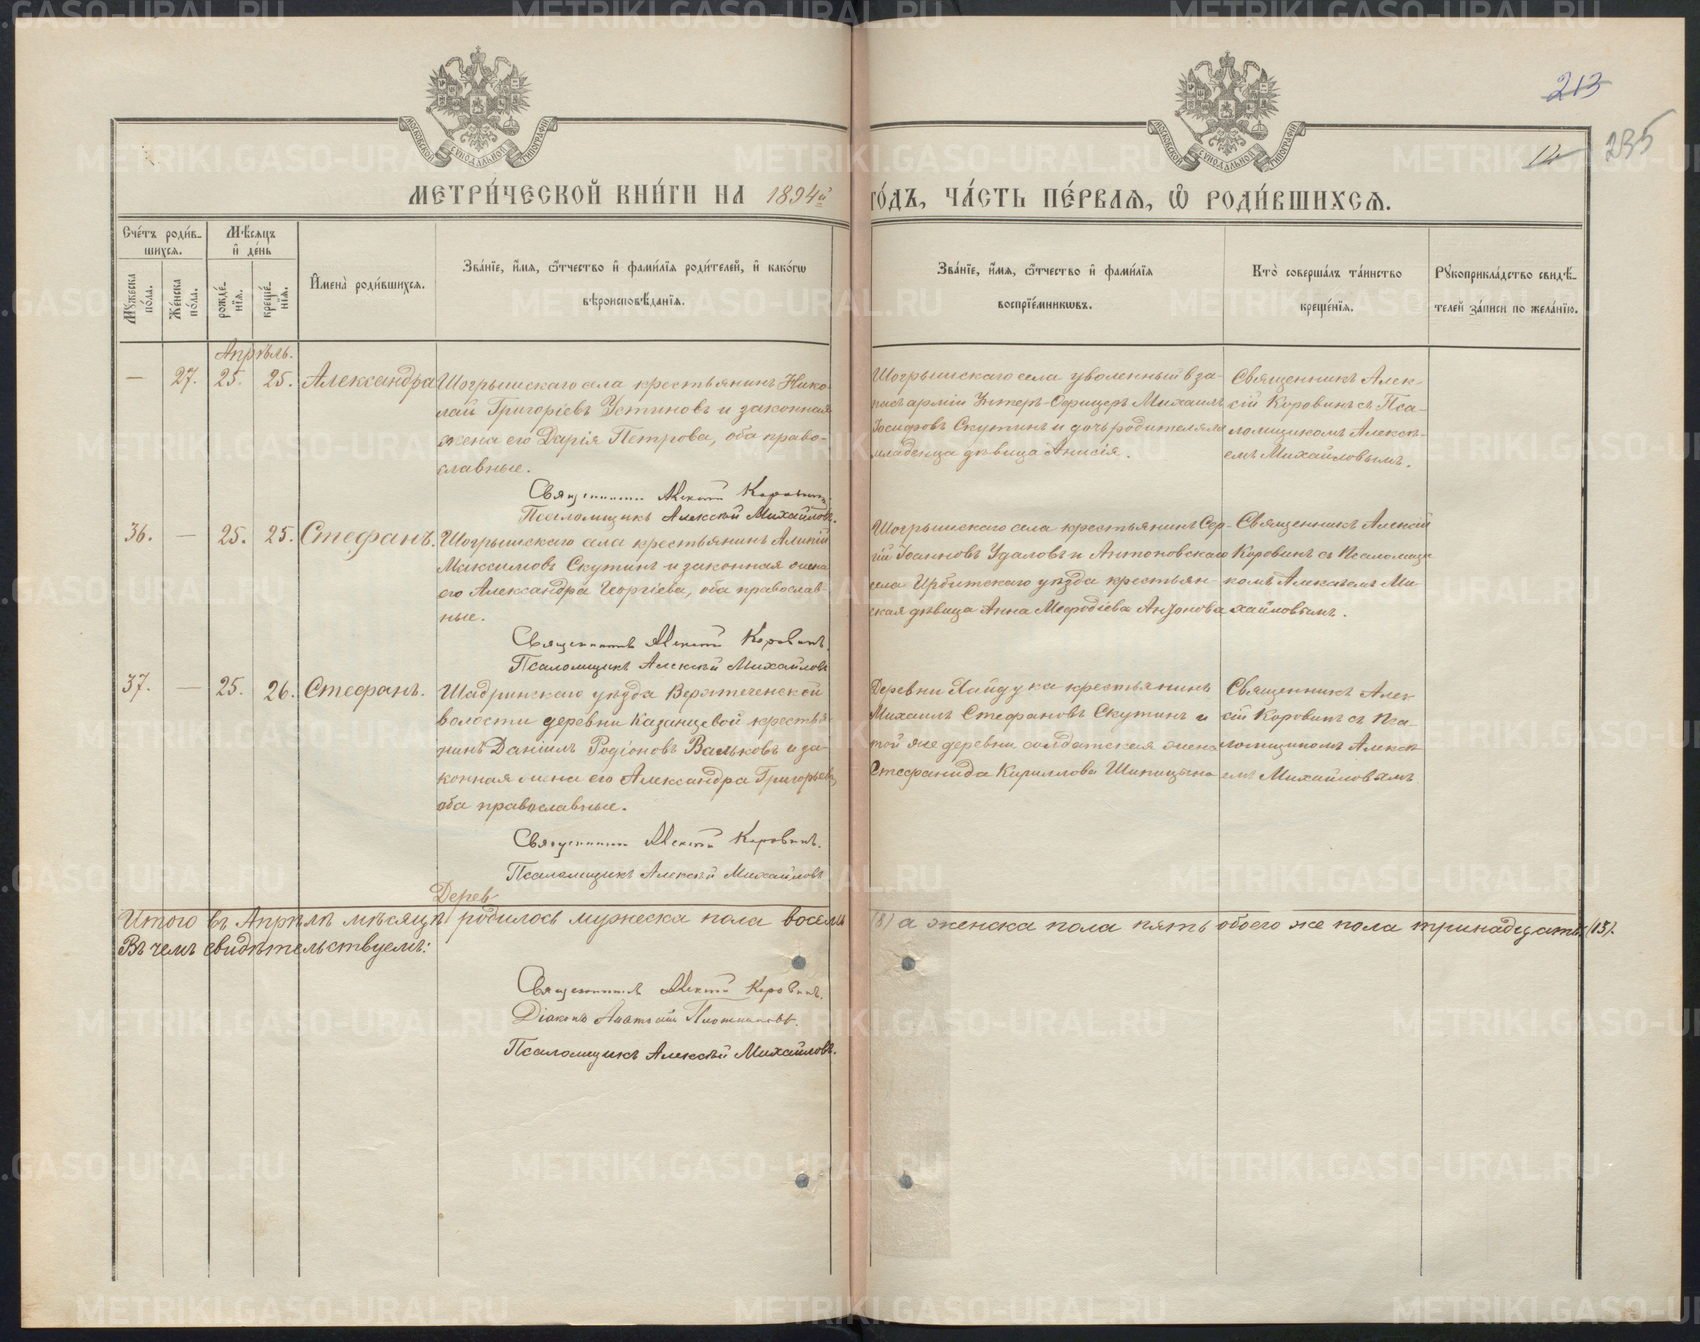 213
12
235
МОСКОВСКОЙ СѴНОДАЛЬНОЙ ТИПОГРАФІИ
МОСКОВСКОЙ СѴНОДАЛЬНОЙ ТИПОГРАФІИ
МЕТРИ́ЧЕСКОЙ КНИ́ГИ НА 1894й ГО́ДЪ, ЧА́СТЬ ПЕ́РВАѦ, Ѽ РОДИ́ВШИХСѦ.
Сче́тъ роди́вшихсѧ.
Мꙋ́жеска по́ла.
Же́нска по́ла.
Мѣ́сѧцъ и҆ де́нь
рожде́нїѧ.
креще́нїѧ.
И҆мена̀ роди́вшихсѧ.
Зва́нїе, и҆́мѧ, ѻ҆́тчество и҆ фами́лїѧ роди́телей, и҆ како́гѡ
вѣроисповѣ́данїѧ.
Зва́нїе, и҆́мѧ, ѻ҆́тчество и҆ фами́лїѧ
воспрїе́мникѡвъ.
Кто̀ соверша́лъ та́инство
креще́нїѧ.
Рꙋкоприкла́дство свидѣ́телей за́писи по жела́нїю.
Апрѣль.
— 27. 25. 25. Александра
Шогрышскаго села крестьянинъ Нико-
лай Григоріевъ Устиновъ и законная
жена его Дарія Петрова, оба право-
славные.
Священникъ Алексій Коровинъ.
Псаломщикъ Алексѣй Михайловъ.
Шогрышскаго села уволенный въ за-
пасъ арміи Унтеръ-Офицеръ Михаилъ
Іосифовъ Скутинъ и дочь родителямъ
младенца дѣвица Анисія.
Священникъ Алек-
сій Коровинъ съ Пса-
ломщикомъ Алексѣ-
емъ Михайловымъ.
36. — 25. 25. Стефанъ.
Шогрышскаго села крестьянинъ Алипій
Максимовъ Скутинъ и законная жена
его Александра Георгіева, оба православ-
ные.
Священникъ Алексій Коровинъ.
Псаломщикъ Алексѣй Михайловъ
Шогрышскаго села крестьянинъ Сер-
гій Іоанновъ Удаловъ и Антоновскаго
села Ирбитскаго уѣзда крестьян-
ская дѣвица Анна Меѳодіева Антонова
Священникъ Алексій
Коровинъ съ Псаломщи-
комъ Алексѣемъ Ми-
хайловымъ.
37. — 25. 26. Стефанъ.
Шадринскаго уѣзда Верхтеченской
волости деревни Казанцевой крестья-
нинъ Даніилъ Родіоновъ Вальковъ и за-
конная жена его Александра Григорьева,
оба православные.
Священникъ Алексій Коровинъ.
Псаломщикъ Алексѣй Михайловъ
Деревни Лайдука крестьянинъ
Михаилъ Стефановъ Скутинъ и
той же деревни солдатская жена
Стефанида Кириллова Шипицына
Священникъ Алек-
сій Коровинъ съ Пса-
ломщикомъ Алексѣ-
емъ Михайловымъ
Дерев-
Итого въ Апрѣлѣ мѣсяцѣ родилось мужеска пола восемь (8) а женска пола пять обоего же пола тринадцать (13).
Въ чемъ свидѣтельствуемъ:
Священникъ Алексій Коровинъ.
Діаконъ Плотниковъ.
Псаломщикъ Алексѣй Михайловъ.
METRIKI.GASO-URAL.RU